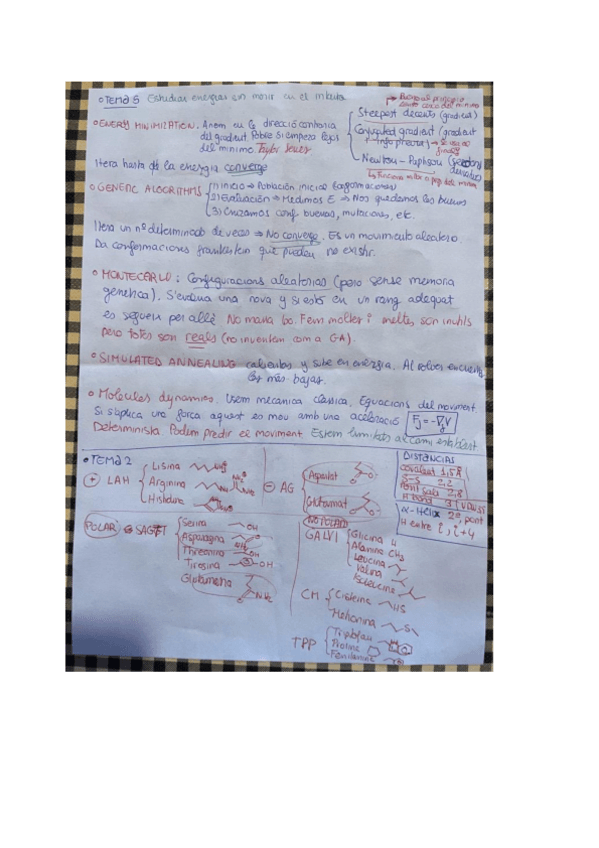 • TEMA 5 Estudiar energías sin morir en el intento
• ENERGY MINIMIZATION. Anem en la direcció contraria
del gradient. Poble si empieza lejos
del mínimo. Taylor Series
→ Bueno al principio
Steepest decents (gradient)
Conjugated gradient (gradient
info previa) →
Newton-Raphson (
Itera hasta q la energia converge
• GENETIC ALGORITHMS
1) Inicio → Población inicial (conformaciones)
2) Evaluación → Medimos E → Nos quedamos las buenas
3) Cruzamos conf. buenas, mutaciones, etc.
Itera un nº determinado de veces → No converge. Es un movimiento aleatorio
Da conformaciones frankestein que pueden no existir.
• MONTECARLO: Configuracions aleatorias (pero sense memoria
genetica). S'evalua una nova y si està en un rang adequat
es segueix per allà. No mana loo. Fem moltes i moltes, son inutils
pero totes son reals (no inventem com a GA).
• SIMULATED ANNEALING calientas y sube en energia. Al volver encuentras
las más bajas.
• Molecules dynamics. Usem mecànica clàssica. Equacions del moviment
Si s'aplica una força aquest es mou amb una acceleració Fj = -∇jV
Determinista Podem predir el moviment Estem limitats al camí establert
• TEMA 2
+ LAH
Lisina
Arginina
Histidina
- AG
Aspartat
Glutamat
DISTANCIAS
covalent 1,5 Å
S-S 2,2
Pont salí 2,8
H bond 3
α-Hèlix 2ª, pont
H entre i, i+4
POLAR SAGTT
Serina OH
Asparagina
Threonina OH
Tirosina OH
Glutamina NH2
NO POLAR
GALVI
Glicina H
Alanina CH3
Leucina
Valina
Isoleucina
CM
Cisteina HS
Metionina S
TPP
Triptofan
Prolina
Fenilalanina